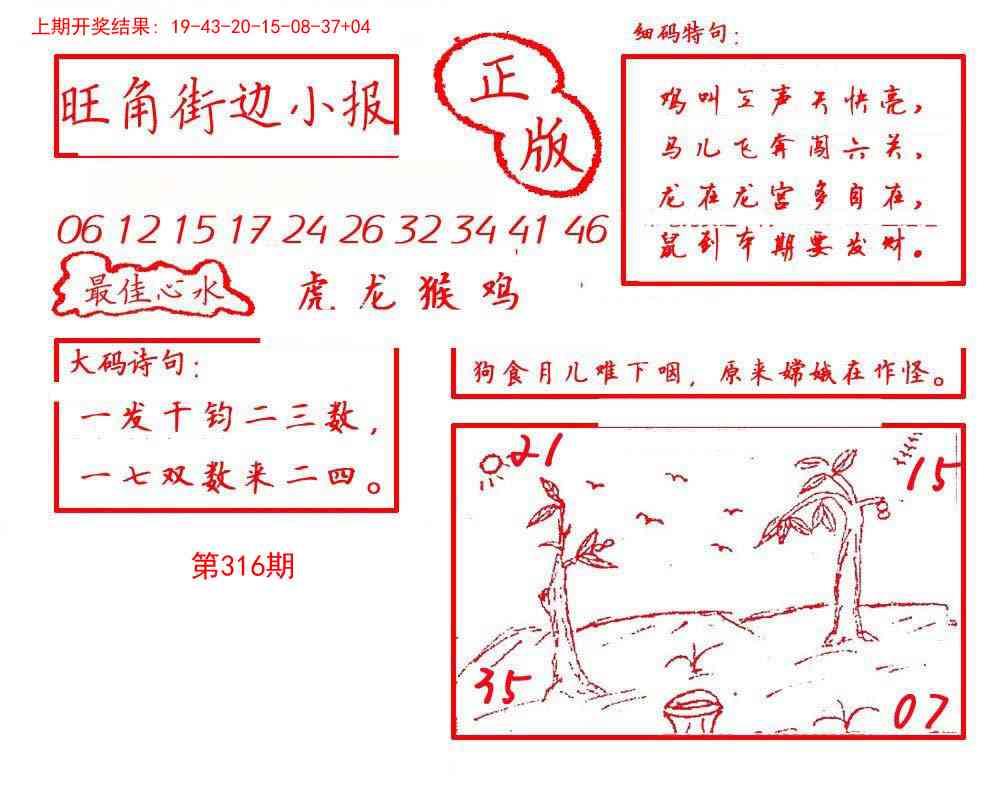 上期开奖结果：19-43-20-15-08-37+04
旺角街边小报
正
版
细码特句：
鸡叫三声天快亮，
马儿飞奔闯六关，
龙在龙宫多自在，
鼠到本期要发财。
06 12 15 17 24 26 32 34 41 46
最佳心水
虎.龙猴鸡
大码诗句：
一发千钧二三数，
一七双数来二四。
第316期
狗食月儿难下咽，原来嫦娥在作怪。
21
15
35
07